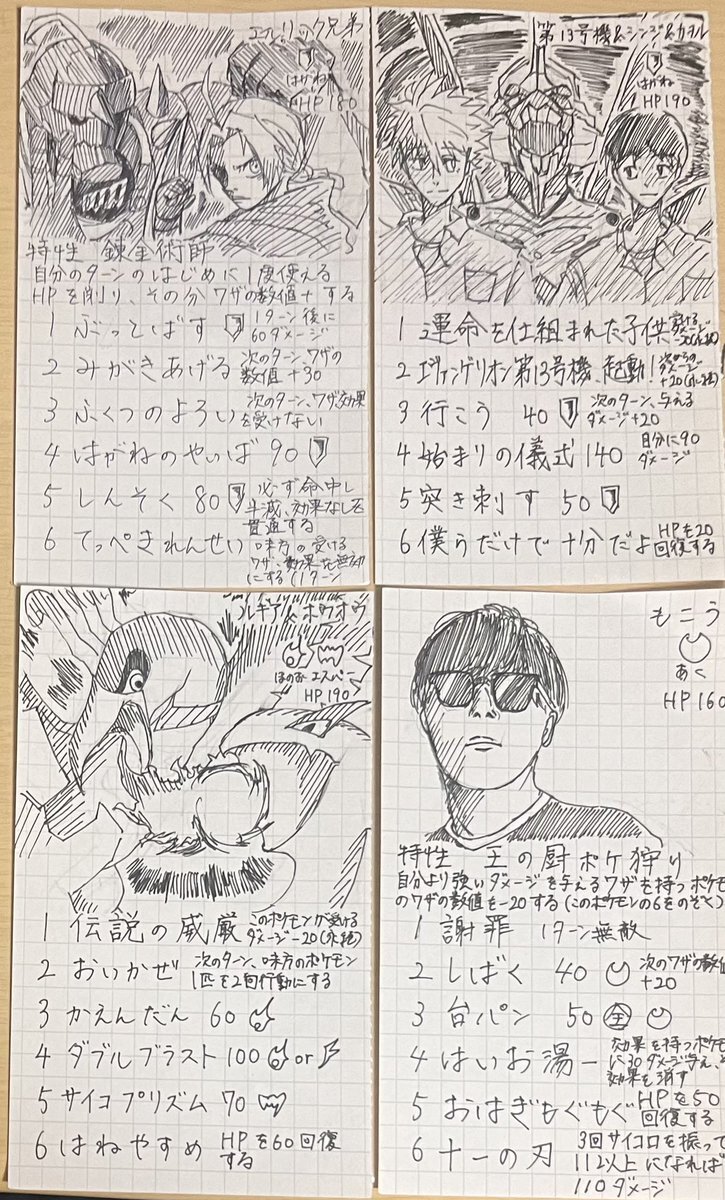 エルリック兄弟
はがね
HP 180
特性 錬金術師
自分のターンのはじめに1度使える
HPを削り、その分ワザの数値+する
1 ぶっとばす 1ターン後に
60ダメージ
2 みがきあげる 次のターン、ワザの
数値+30
3 ふくつのよろい 次のターン、ワザ効果
を受けない
4 はがねのやいば 90
5 しんそく 80 必ず命中し
半減、効果なしを
貫通する
6 てっぺきれんせい 味方の受ける
ワザ、効果を無効
にする(1ターン
第13号機&シンジ&カヲル
はがね
HP190
1 運命を仕組まれた子供 受ける
ダメージ
-20(永続)
2 エヴァンゲリオン第13号機、起動! 次からの
ダメージ
+20(永続)
3 行こう 40 次のターン、与える
ダメージ+20
4 始まりの儀式 140 自分に90
ダメージ
5 突き刺す 50
6 僕らだけで十分だよ HPを20
回復する
ルギア&ホウオウ
ほのお エスパー
HP 190
1 伝説の威厳 このポケモンが受ける
ダメージ-20(永続)
2 おいかぜ 次のターン、味方のポケモン
1匹を2回行動にする
3 かえんだん 60
4 ダブルブラスト 100 or
5 サイコプリズム 70
6 はねやすめ HPを60回復
する
もこう
あく
HP 160
特性 王の厨ポケ狩り
自分より強いダメージを与えるワザを持つポケモ
のワザの数値を-20する(このポケモンの6をのぞく)
1 謝罪 1ターン無敵
2 しばく 40 次のワザの数値
+20
3 台パン 50 全
4 はいお湯ー 効果を持つポケモ
に30ダメージ与え、
効果を消す
5 おはぎもぐもぐ HPを50
回復する
6 十一の刃 3回サイコロを振って
112以上になれば
110ダメージ